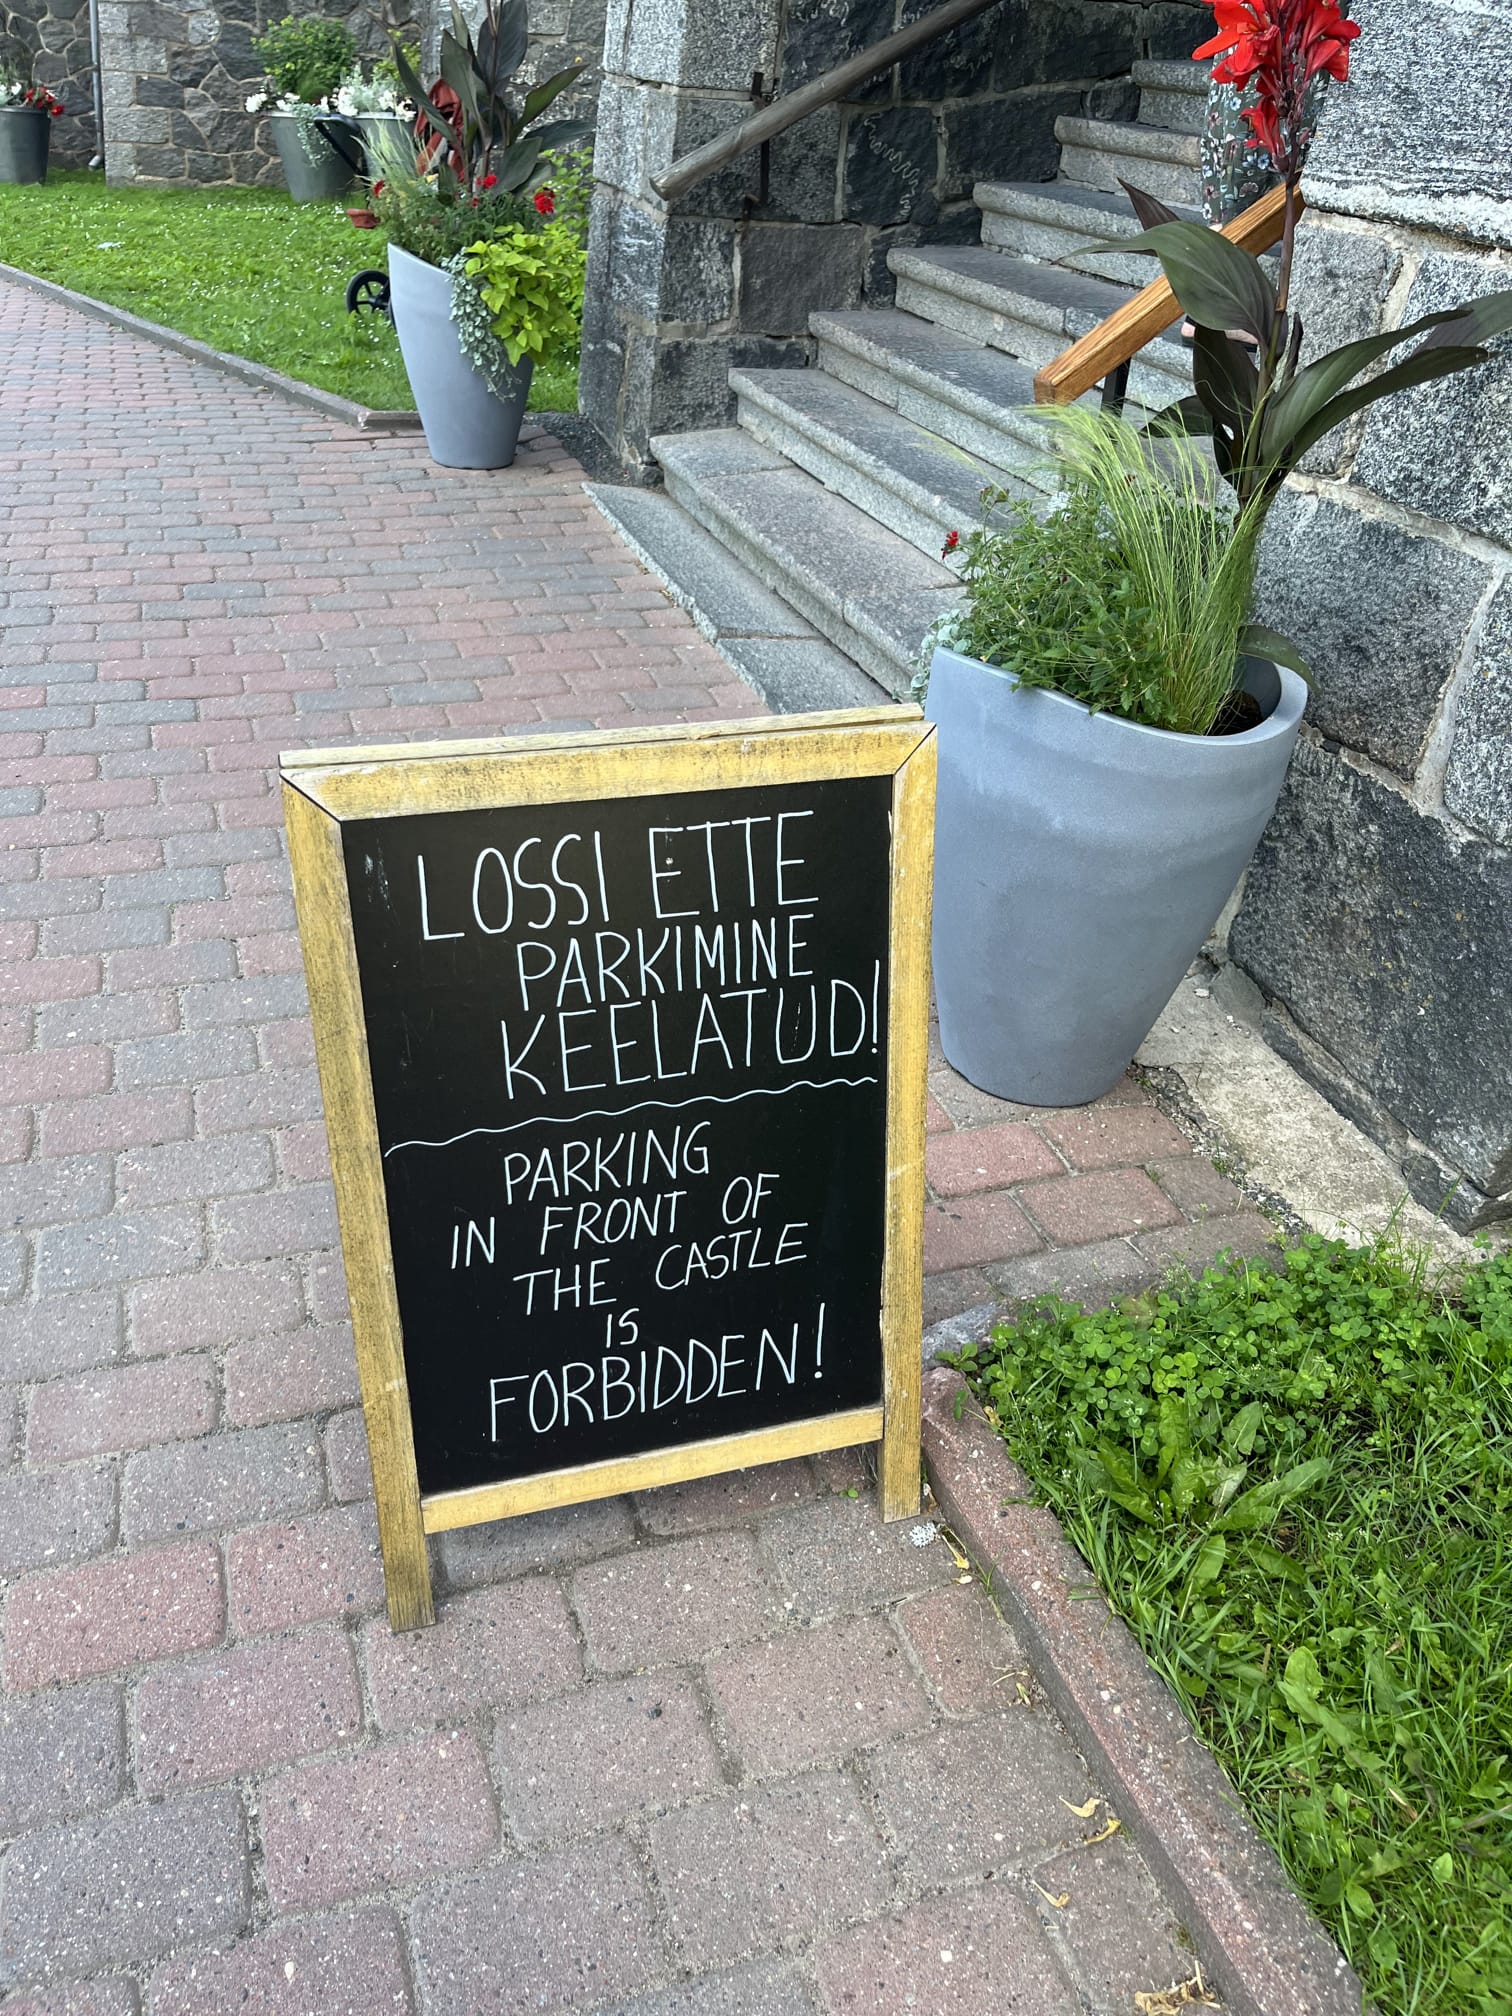 LOSSI ETTE
PARKIMINE
KEELATUD!
PARKING
IN FRONT OF
THE CASTLE
IS
FORBIDDEN!